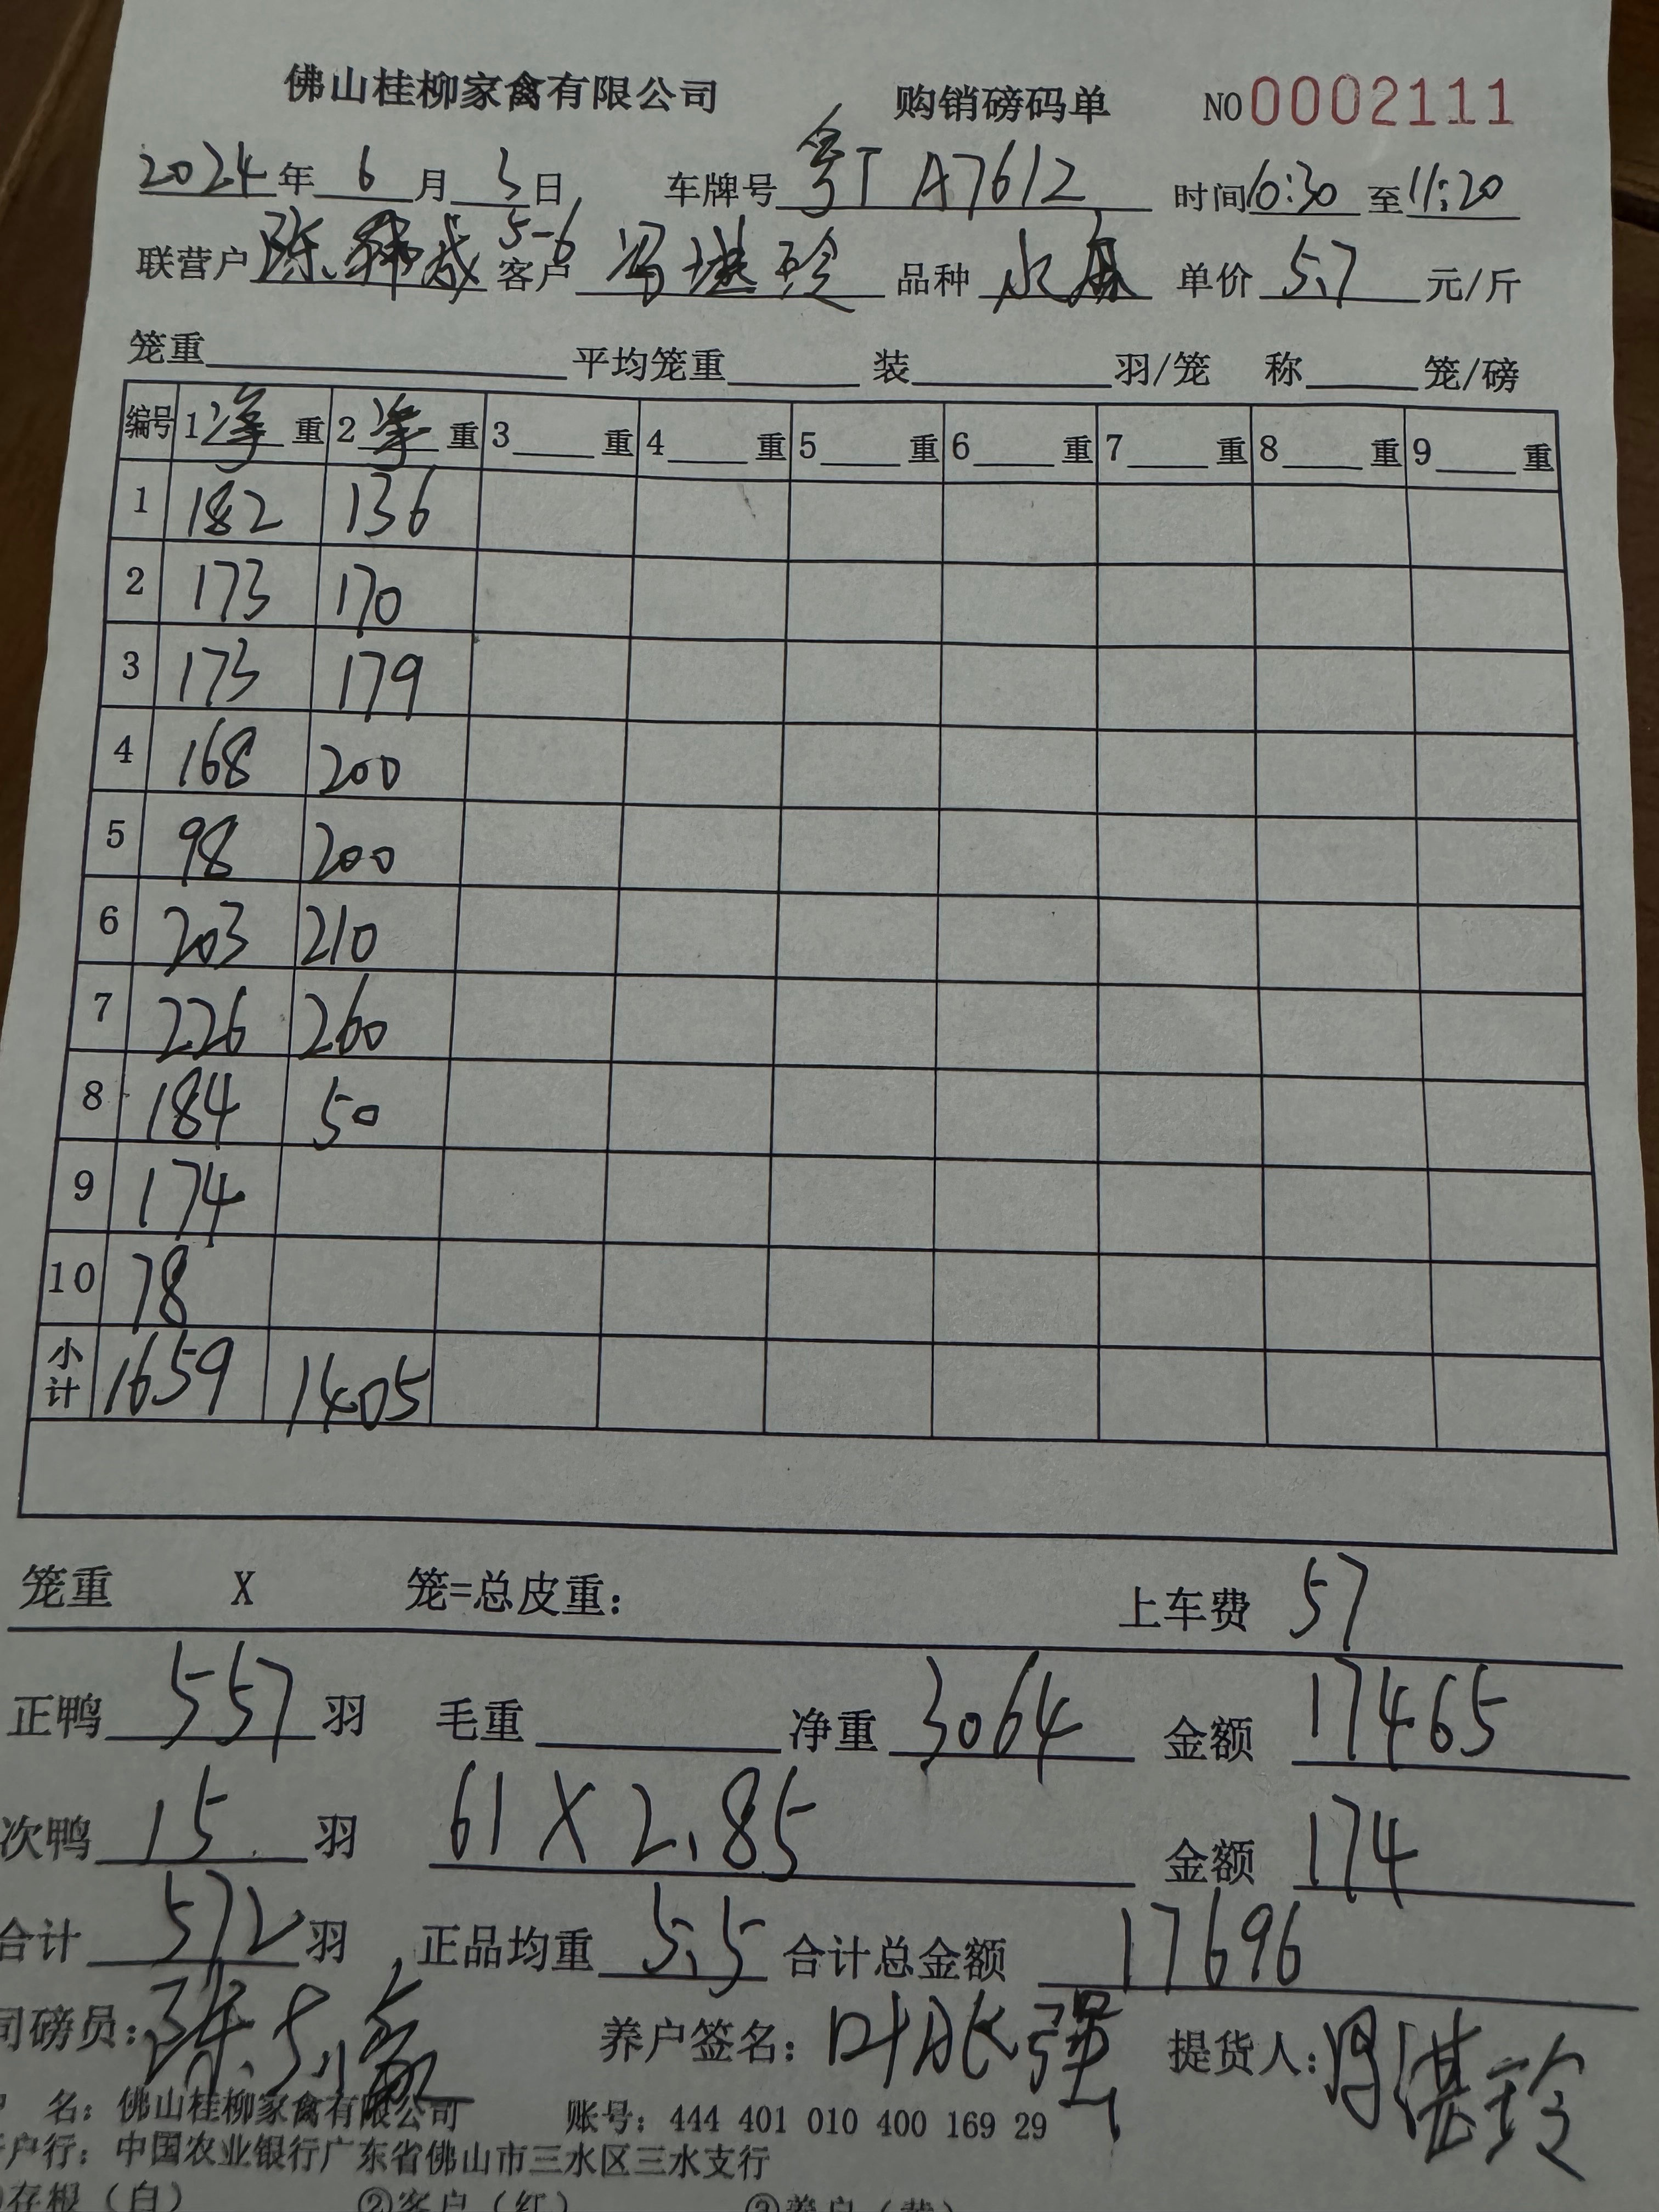 佛山桂柳家禽有限公司 购销磅码单 NO 0002111
2024年 6 月 3 日 车牌号 粤T A7612 时间 10:30 至 11:20
5-6
联营户 陈 成 客户 冯 玲 品种 水麻 单价 5.7 元/斤
笼重 平均笼重 装 羽/笼 称 笼/磅
编号 1 净 重 2 净 重 3 重 4 重 5 重 6 重 7 重 8 重 9 重
1 182 136
2 173 170
3 173 179
4 168 200
5 98 200
6 203 210
7 226 260
8 184 50
9 174
10 78
小计 1659 1405
笼重 X 笼=总皮重: 上车费 57
正鸭 557 羽 毛重 净重 3064 金额 17465
次鸭 15 羽 61 X 2.85 金额 174
合计 572 羽 正品均重 5.5 合计总金额 17696
司磅员: 养户签名: 叶胀强 提货人: 湛玲
名: 佛山桂柳家禽有限公司 账号: 444 401 010 400 169 29
户行: 中国农业银行广东省佛山市三水区三水支行
存根（白） ②客户（红） ③养户（黄）